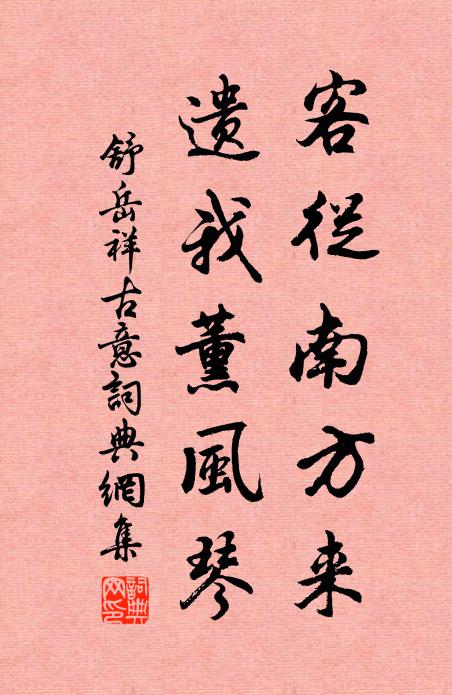 客從南方来
遺我薰風琴
舒岳祥古意詞典網集
詞典网印